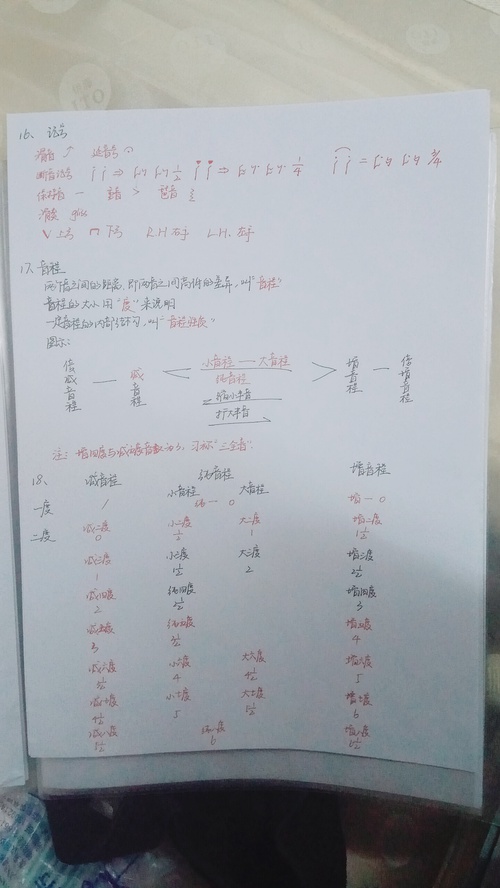 16、记号
滑音 ↗ 延音号
断音记号 ⇒ 1/2 ⇒ 1/4 = 3/4
保持音 — 重音 > 琶音
滑奏 gliss
V 上弓 ⊓ 下弓 R.H 右手 L.H. 左手
17、音程
两个音之间的距离,即两音之间高低的差异,叫"音程"
音程的大小用"度"来说明
图示:
倍减音程 — 减音程 小音程 — 大音程 纯音程 增音程 — 倍增音程
缩小半音
扩大半音
注:增四度与减五度音数为3,习称"三全音"
18、 减音程 纯音程 增音程
小音程 大音程
一度 / 纯一 0 增一 0
二度 减二度 小二度 大二度 增二度
0 1/2 1 1 1/2
减三度 小三度 大三度 增三度
1 1 1/2 2 2 1/2
减四度 纯四度 增四度
2 2 1/2 3
减五度 纯五度 增五度
3 3 1/2 4
减六度 小六度 大六度 增六度
3 1/2 4 4 1/2 5
减七度 小七度 大七度 增七度
4 1/2 5 5 1/2 6
减八度 纯八度 增八度
5 1/2 6 6 1/2